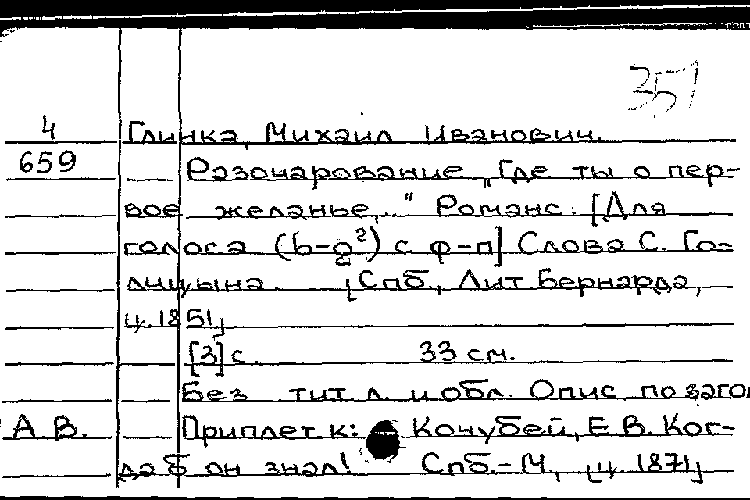 351
4 Глинка, Михаил Иванович.
659 Разочарование „Где ты о пер-
вое желанье..." Романс. [Для
голоса (b-g²) с ф-п] Слова С. Го-
лицына [Спб., Лит Бернарда,
ц. 1851]
[3] с. 33 см.
Без тит л. и обл. Опис по загол
А В. Приплет к: Кочубей, Е В. Ког-
да б он знал! Спб.-М, [ц. 1871]